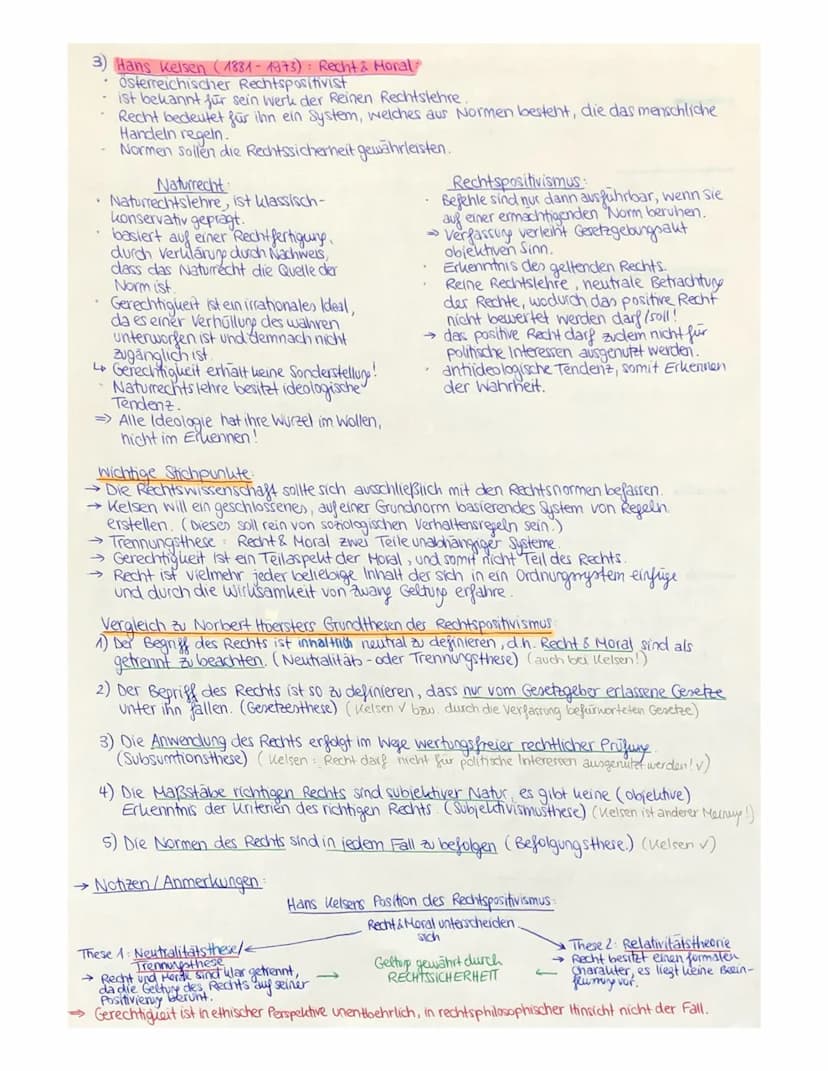 3) Hans Kelsen (1881-1973): Recht & Moral:
· österreichischer Rechtspositivist
- ist bekannt für sein Werk der Reinen Rechtslehre.
· Recht bedeutet für ihn ein System, welches aus Normen besteht, die das menschliche
Handeln regeln.
- Normen sollen die Rechtssicherheit gewährleisten.
Naturrecht:
· Naturrechtslehre, ist klassisch-
konservativ geprägt.
· basiert auf einer Rechtfertigung,
durch Verklärung durch Nachweis,
dass das Naturrecht die Quelle der
Norm ist.
· Gerechtigkeit ist ein irrationales Ideal,
da es einer Verhüllung des wahren
unterworfen ist und demnach nicht
zugänglich ist.
↳ Gerechtigkeit erhält keine Sonderstellung!
· Naturrechtslehre besitzt ideologische
Tendenz.
⇒ Alle Ideologie hat ihre Wurzel im Wollen,
nicht im Erkennen!
Rechtspositivismus:
· Befehle sind nur dann ausführbar, wenn sie
auf einer ermächtigenden Norm beruhen.
⇒ Verfassung verleiht Gesetzgebungsakt
objektiven Sinn.
· Erkenntnis des geltenden Rechts.
· Reine Rechtslehre, neutrale Betrachtung
der Rechte, wodurch das positive Recht
nicht bewertet werden darf/soll!
→ das positive Recht darf zudem nicht für
politische Interessen ausgenutzt werden.
· antiideologische Tendenz, somit Erkennen
der Wahrheit.
Wichtige Stichpunkte:
→ Die Rechtswissenschaft sollte sich ausschließlich mit den Rechtsnormen befassen.
→ Kelsen will ein geschlossenes, auf einer Grundnorm basierendes System von Regeln
erstellen. (Dieses soll rein von soziologischen Verhaltensregeln sein.)
→ Trennungsthese: Recht & Moral zwei Teile unabhängiger Systeme.
→ Gerechtigkeit ist ein Teilaspekt der Moral, und somit nicht Teil des Rechts.
→ Recht ist vielmehr jeder beliebige Inhalt der sich in ein Ordnungssystem einfüge
und durch die Wirksamkeit von Zwang Geltung erfahre.
Vergleich zu Norbert Hoersters Grundthesen des Rechtspositivismus:
1) Der Begriff des Rechts ist inhaltlich neutral zu definieren, d.h. Recht & Moral sind als
getrennt zu beachten. (Neutralitäts- oder Trennungsthese) (auch bei Kelsen!)
2) Der Begriff des Rechts ist so zu definieren, dass nur vom Gesetzgeber erlassene Gesetze
unter ihn fallen. (Gesetzesthese) (Kelsen ✓ bzw. durch die Verfassung befürworteten Gesetze)
3) Die Anwendung des Rechts erfolgt im Wege wertungsfreier rechtlicher Prüfung.
(Subsumtionsthese) (Kelsen: Recht darf nicht für politische Interessen ausgenutzt werden! ✓)
4) Die Maßstäbe richtigen Rechts sind subjektiver Natur, es gibt keine (objektive)
Erkenntnis der Kriterien des richtigen Rechts. (Subjektivismusthese) (Kelsen ist anderer Meinung!)
5) Die Normen des Rechts sind in jedem Fall zu befolgen (Befolgungsthese.) (Kelsen ✓)
→ Notizen/Anmerkungen:
Hans Kelsens Position des Rechtspositivismus:
Recht & Moral unterscheiden
sich
These 1: Neutralitätsthese/
Trennungsthese
→ Recht und Moral sind klar getrennt,
da die Geltung des Rechts auf seiner
Positivierung beruht.
→ Geltung gewährt durch
RECHTSSICHERHEIT ←
These 2: Relativitätstheorie
→ Recht besitzt einen formalen
Charakter, es liegt keine Beein-
flussung vor.
⇒ Gerechtigkeit ist in ethischer Perspektive unentbehrlich, in rechtsphilosophischer Hinsicht nicht der Fall.